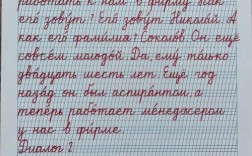 работать к нам в фирму. Как
его́ зову́т? Его́ зову́т Никола́й. А
как его́ фами́лия? Соколо́в. Он ещё
совсе́м молодо́й. Да, ему́ то́лько
два́дцать шесть лет. Ещё год
наза́д он был аспира́нтом, а
тепе́рь рабо́тает ме́неджером
у нас в фи́рме.
Диалог 2